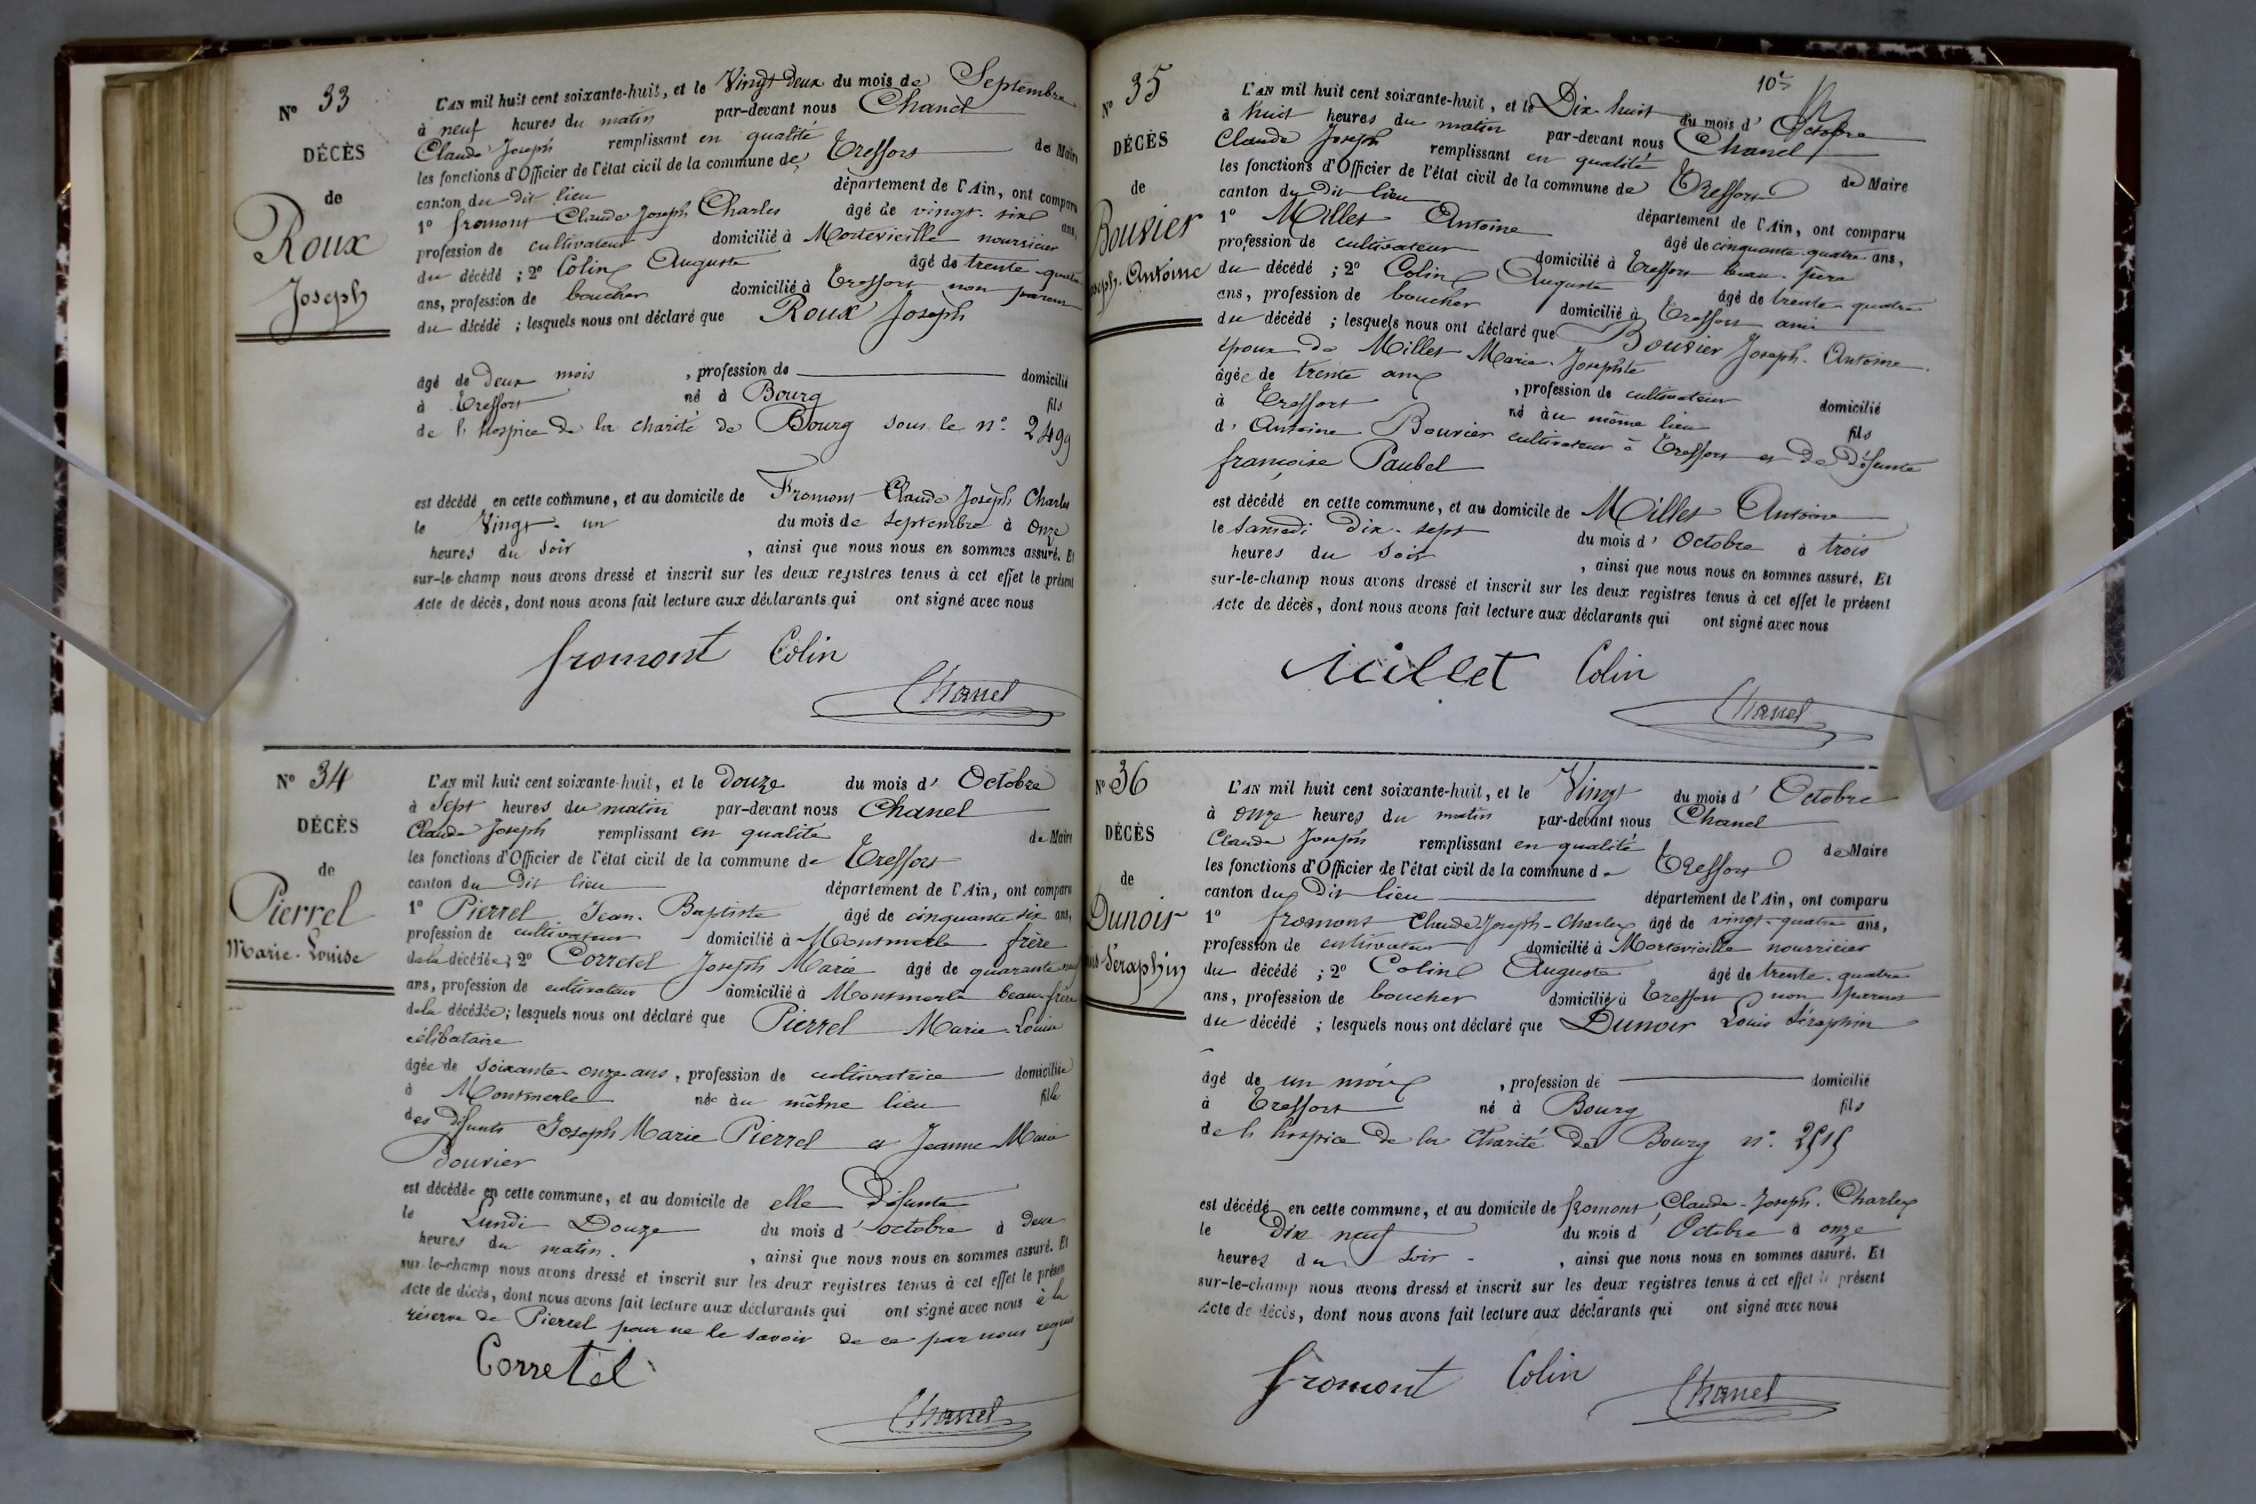 N° 33
DÉCÈS
de
Roux
Joseph
L'AN mil huit cent soixante-huit, et le Vingt-deux du mois de Septembre
à neuf heures du matin par-devant nous Chanel
Claude Joseph remplissant en qualité de Maire
les fonctions d'Officier de l'état civil de la commune de Treffort
canton du dit lieu département de l'Ain, ont comparu
1° fromont Claude Joseph Charles âgé de vingt-six ans,
profession de cultivateur domicilié à Mortevieille nourricier
du décédé ; 2° Colin Auguste âgé de trente-quatre
ans, profession de boucher domicilié à Treffort non parent
du décédé ; lesquels nous ont déclaré que Roux Joseph
âgé de deux mois , profession de domicilié
à Treffort né à Bourg fils
de l'hospice de la charité de Bourg sous le n° 2499
est décédé en cette commune, et au domicile de Fromont Claude Joseph Charles
le Vingt-un du mois de Septembre à onze
heures du soir , ainsi que nous nous en sommes assuré. Et
sur-le-champ nous avons dressé et inscrit sur les deux registres tenus à cet effet le présent
Acte de décès, dont nous avons fait lecture aux déclarants qui ont signé avec nous
fromont Colin
Chanel
N° 34
DÉCÈS
de
Pierrel
Marie-Louise
L'AN mil huit cent soixante-huit, et le douze du mois d' Octobre
à Sept heures du matin par-devant nous Chanel
Claude Joseph remplissant en qualité de Maire
les fonctions d'Officier de l'état civil de la commune de Treffort
canton du dit lieu département de l'Ain, ont comparu
1° Pierrel Jean-Baptiste âgé de cinquante six ans,
profession de cultivateur domicilié à Montmerle frère
de la décédée ; 2° Corretel Joseph Marie âgé de quarante neuf
ans, profession de cultivateur domicilié à Montmerle beau-frère
de la décédée ; lesquels nous ont déclaré que Pierrel Marie-Louise
célibataire
âgée de soixante-onze ans, profession de cultivatrice domiciliée
à Montmerle née au même lieu fille
des défunts Joseph Marie Pierrel et Jeanne Marie
Bouvier
est décédée en cette commune, et au domicile de elle défunte
le Lundi Douze du mois d' octobre à deux
heures du matin. , ainsi que nous nous en sommes assuré. Et
sur-le-champ nous avons dressé et inscrit sur les deux registres tenus à cet effet le présent
Acte de décès, dont nous avons fait lecture aux déclarants qui ont signé avec nous à la
réserve de Pierrel pour ne le savoir de ce par nous requis
Corretel
Chanel
10e
N° 35
DÉCÈS
de
Bouvier
Joseph-Antoine
L'AN mil huit cent soixante-huit, et le Dix-huit du mois d' Octobre
à huit heures du matin par-devant nous Chanel
Claude Joseph remplissant en qualité de Maire
les fonctions d'Officier de l'état civil de la commune de Treffort
canton du dit lieu département de l'Ain, ont comparu
1° Millet Antoine âgé de cinquante-quatre ans,
profession de cultivateur domicilié à Treffort beau-père
du décédé ; 2° Colin Auguste âgé de trente-quatre
ans, profession de boucher domicilié à Treffort ami
du décédé ; lesquels nous ont déclaré que Bouvier Joseph-Antoine
époux de Millet Marie-Josephte
âgé de trente ans , profession de cultivateur domicilié
à Treffort né au même lieu fils
d' Antoine Bouvier cultivateur à Treffort et de défunte
françoise Paubel
est décédé en cette commune, et au domicile de Millet Antoine
le Samedi dix-sept du mois d' Octobre à trois
heures du soir , ainsi que nous nous en sommes assuré, Et
sur-le-champ nous avons dressé et inscrit sur les deux registres tenus à cet effet le présent
Acte de décès, dont nous avons fait lecture aux déclarants qui ont signé avec nous
Millet Colin
Chanel
N° 36
DÉCÈS
de
Dunoir
Louis-Séraphin
L'AN mil huit cent soixante-huit, et le Vingt du mois d' Octobre
à onze heures du matin par-devant nous Chanel
Claude Joseph remplissant en qualité de Maire
les fonctions d'Officier de l'état civil de la commune de Treffort
canton du dit lieu département de l'Ain, ont comparu
1° fromont Claude-Joseph-Charles âgé de vingt-quatre ans,
profession de cultivateur domicilié à Mortevieille nourricier
du décédé ; 2° Colin Auguste âgé de trente-quatre
ans, profession de boucher domicilié à Treffort non parent
du décédé ; lesquels nous ont déclaré que Dunoir Louis Séraphin
âgé de un mois , profession de domicilié
à Treffort né à Bourg fils
de l'hospice de la Charité de Bourg n° 2515
est décédé en cette commune, et au domicile de fromont Claude-Joseph-Charles
le Dix neuf du mois d' Octobre à onze
heures du soir , ainsi que nous nous en sommes assuré. Et
sur-le-champ nous avons dressé et inscrit sur les deux registres tenus à cet effet le présent
Acte de décès, dont nous avons fait lecture aux déclarants qui ont signé avec nous
fromont Colin
Chanel